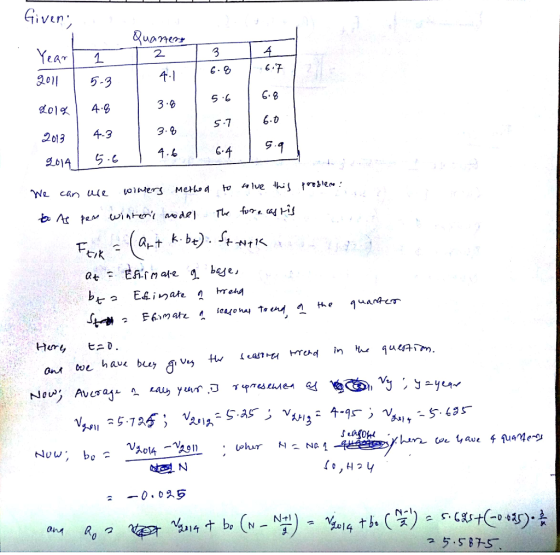 Given;
Quarters
Year 1 2 3 4
2011 5.3 4.1 6.8 6.7
2012 4.8 3.8 5.6 6.8
2013 4.3 3.8 5.7 6.0
2014 5.6 4.6 6.4 5.9
We can use winters method to solve this problem:
As per winter's model the forecast is
F_{t,k} = (a_t + k·b_t)· S_{t-N+K}
a_t = Estimate of base,
b_t = Estimate of trend
= Estimate of seasonal trend of the quarter
Here, t=0.
and we have been given the seasonal trend in the question.
Now; Average of each year is represented as V_y ; y = year
V_{2011} = 5.725 ; V_{2012} = 5.25 ; V_{2013} = 4.95 ; V_{2014} = 5.625
Now; b_0 = \frac{V_{2014} - V_{2011}}{N} ; where N = No. of seasons, here we have 4 quarters
So, N=4
= -0.025
and a_0 = V_{2014} + b_0 (N - \frac{N+1}{2}) = V_{2014} + b_0 (\frac{N-1}{2}) = 5.625 + (-0.025)·\frac{3}{2}
= 5.5875.